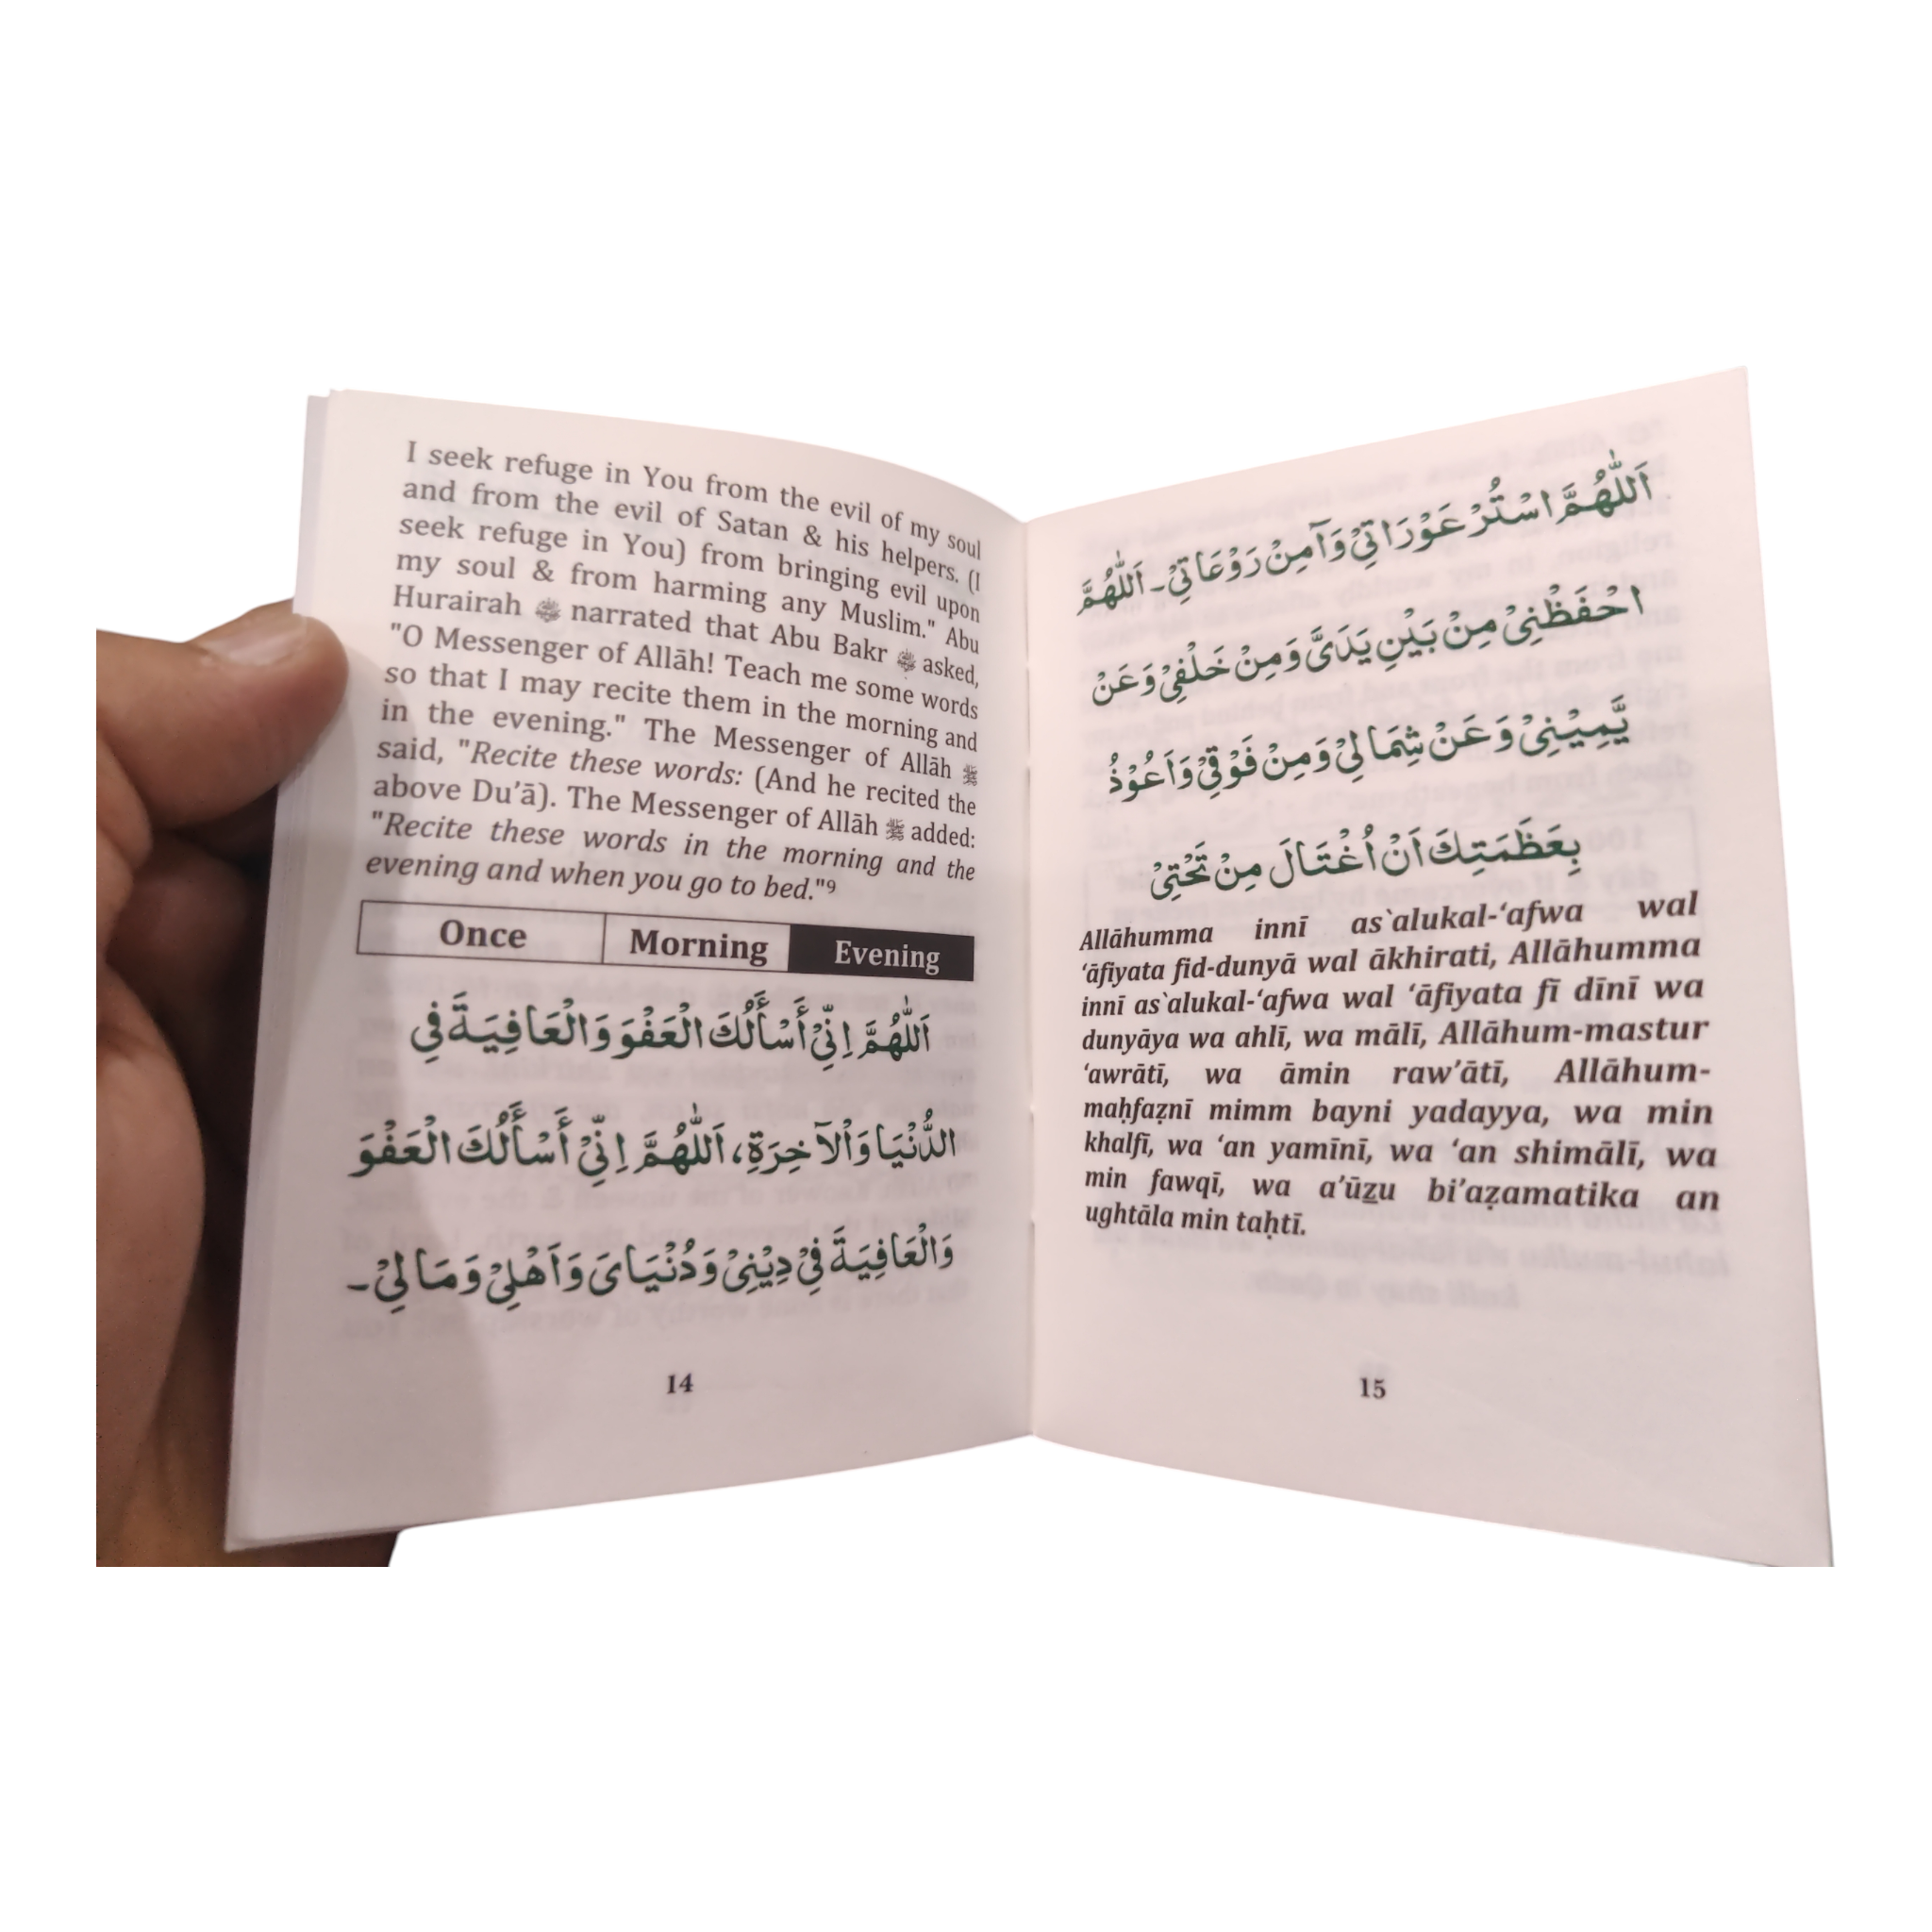 I seek refuge in You from the evil of my soul
and from the evil of Satan & his helpers. (I
seek refuge in You) from bringing evil upon
my soul & from harming any Muslim." Abu
Hurairah narrated that Abu Bakr asked,
"O Messenger of Allāh! Teach me some words
so that I may recite them in the morning and
in the evening." The Messenger of Allāh ﷺ
said, "Recite these words: (And he recited the
above Du’ā). The Messenger of Allāh ﷺ added:
"Recite these words in the morning and the
evening and when you go to bed."⁹
Once Morning Evening
اَللّٰهُمَّ اِنِّىْ أَسْأَلُكَ الْعَفْوَ وَالْعَافِيَةَ فِى
الدُّنْيَا وَاْلآخِرَةِ، اَللّٰهُمَّ اِنِّىْ أَسْأَلُكَ الْعَفْوَ
وَالْعَافِيَةَ فِىْ دِيْنِىْ وَدُنْيَاىَ وَاَهْلِىْ وَمَالِىْ۔
14
اَللّٰهُمَّ اسْتُرْ عَوْرَاتِىْ وَآمِنْ رَوْعَاتِىْ۔ اَللّٰهُمَّ
احْفَظْنِىْ مِنْ بَيْنِ يَدَىَّ وَمِنْ خَلْفِىْ وَعَنْ
يَّمِيْنِىْ وَعَنْ شِمَالِىْ وَمِنْ فَوْقِىْ وَاَعُوْذُ
بِعَظَمَتِكَ اَنْ اُغْتَالَ مِنْ تَحْتِىْ
Allāhumma innī as`alukal-‘afwa wal
‘āfiyata fid-dunyā wal ākhirati, Allāhumma
innī as`alukal-‘afwa wal ‘āfiyata fī dīnī wa
dunyāya wa ahlī, wa mālī, Allāhum-mastur
‘awrātī, wa āmin raw’ātī, Allāhum-
maḥfaẓnī mimm bayni yadayya, wa min
khalfī, wa ‘an yamīnī, wa ‘an shimālī, wa
min fawqī, wa a’ūẕu bi’aẓamatika an
ughtāla min taḥtī.
15